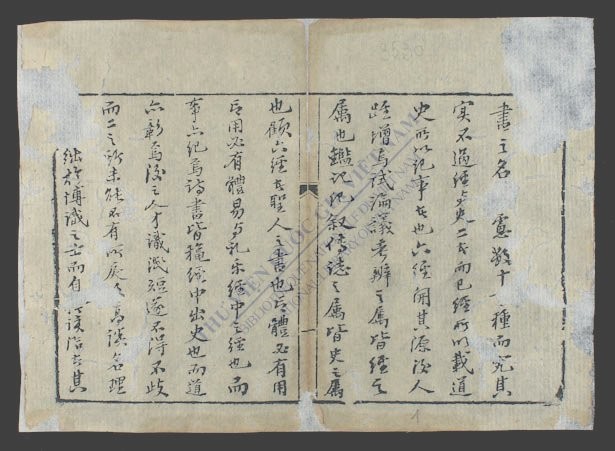 書之名 慮數十 種而究其
實不過經與史二者而已經所以載道
史所以記事者也六經開其源後人
踵增焉試論議考辨之屬皆經之
屬也鑑記紀叙傳志之屬皆史之屬
也顧六經者聖人之書也有體必有用
有用必有體易與礼樂經中之經也而
事亦紀焉詩書皆穐經中出史也而道
亦彰焉後之人才識淺短遂不得不歧
而二之訴未能不有所戾矣高談名理
絀於博識之士而自 該洽者其